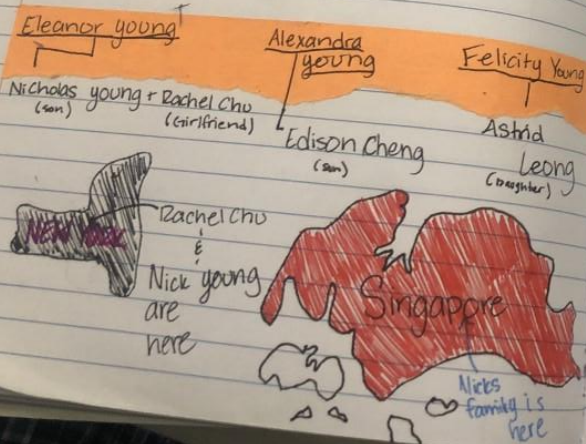 Eleanor young
Alexandra
young
Felicity Young
Nicholas young + Rachel Chu
(son)
(Girlfriend)
Edison Cheng
(son)
Astrid
Leong
(Daughter)
NEW YORK
Rachel Chu
&
Nick young
are
here
Singapore
Nicks
family is
here